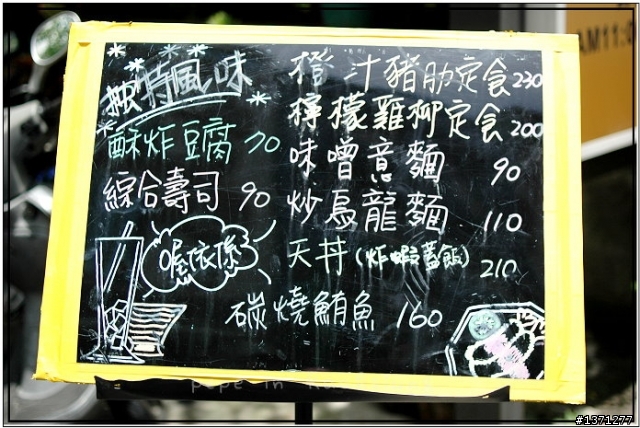 獨特風味
酥炸豆腐 70
綜合壽司 90
喔依係
橙汁豬肋定食 230
檸檬雞柳定食 200
味噌意麵 90
炒烏龍麵 110
天丼(炸蝦蓋飯) 210
碳燒鮪魚 160
AM11:0
#1371277